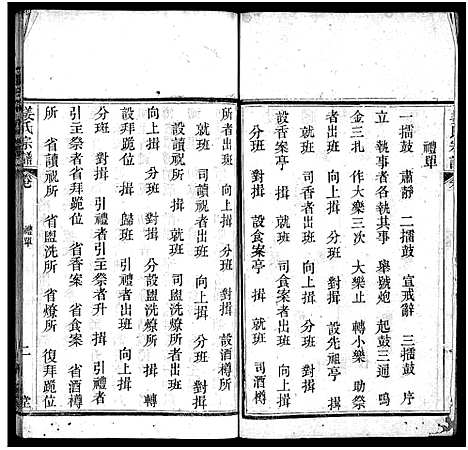 禮單
一擂鼓 肅靜 二擂鼓 宣戒辭 三擂鼓 序
立 執事者各執其事 舉號炮 起鼓三通 鳴
金三扎 作大樂三次 大樂止 轉小樂 助祭
者出班 向上揖 分班 對揖 設先祖亭 揖
就班 司香者出班 向上揖 分班 對揖
設香案亭 揖 就班 司食案者出班 向上揖
分班 對揖 設食案亭 揖 就班 司酒樽
所者出班 向上揖 分班 對揖 設酒樽所
揖 就班 司讀祝所出班 向上揖 分班 對揖
設讀祝所 揖 就班 司盥洗燎所者出班
向上揖 分班 對揖 分設盥洗燎所 揖 轉
設拜跪位 揖 歸班 引禮者出班 向上揖
分班 對揖 引禮者引主祭者升 揖 引禮者
引主祭者省拜跪位 省香案 省食案 省酒樽
所 省讀祝所 省盥洗所 省燎所 復拜跪位
姜氏宗譜 卷 禮單 二 堂